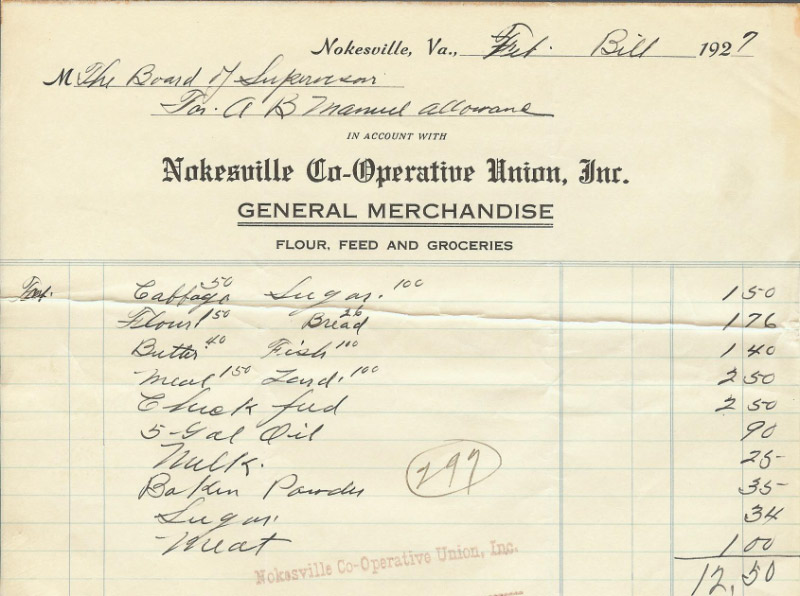 Nokesville, Va., Feb. Bill 1927
M The Board of Supervisor
For. A B Manuel allowanc
IN ACCOUNT WITH
Nokesville Co-Operative Union, Inc.
GENERAL MERCHANDISE
FLOUR, FEED AND GROCERIES
Feb. Cabbage 50 Sugar. 100 1 50
Flour 150 Bread 26 1 76
Butter 40 Fish 100 1 40
Meal 150 Lard. 100 2 50
Chick feed 2 50
5-Gal Oil 90
Milk. 25
Baken Powder 35
297
Sugar. 34
Meat 1 00
Nokesville Co-Operative Union, Inc.
12,50